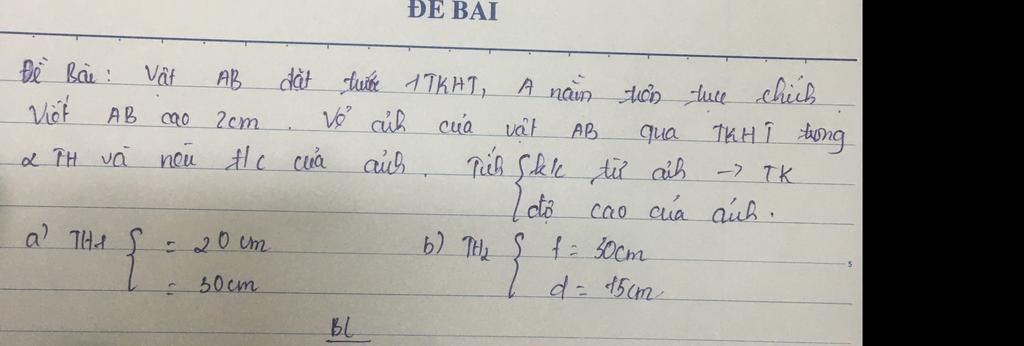 ĐỀ BÀI
Đề Bài : Vật AB đặt trước 1TKHT, A nằm trên trục chích
Viết AB cao 2cm . Vẽ ảnh của vật AB qua TKHT trong
2 TH và nêu t/c của ảnh . Tính { k/c từ ảnh → TK
độ cao của ảnh .
a) TH1 { = 20 cm b) TH2 { f = 30cm
= 30cm d = 15cm
BL